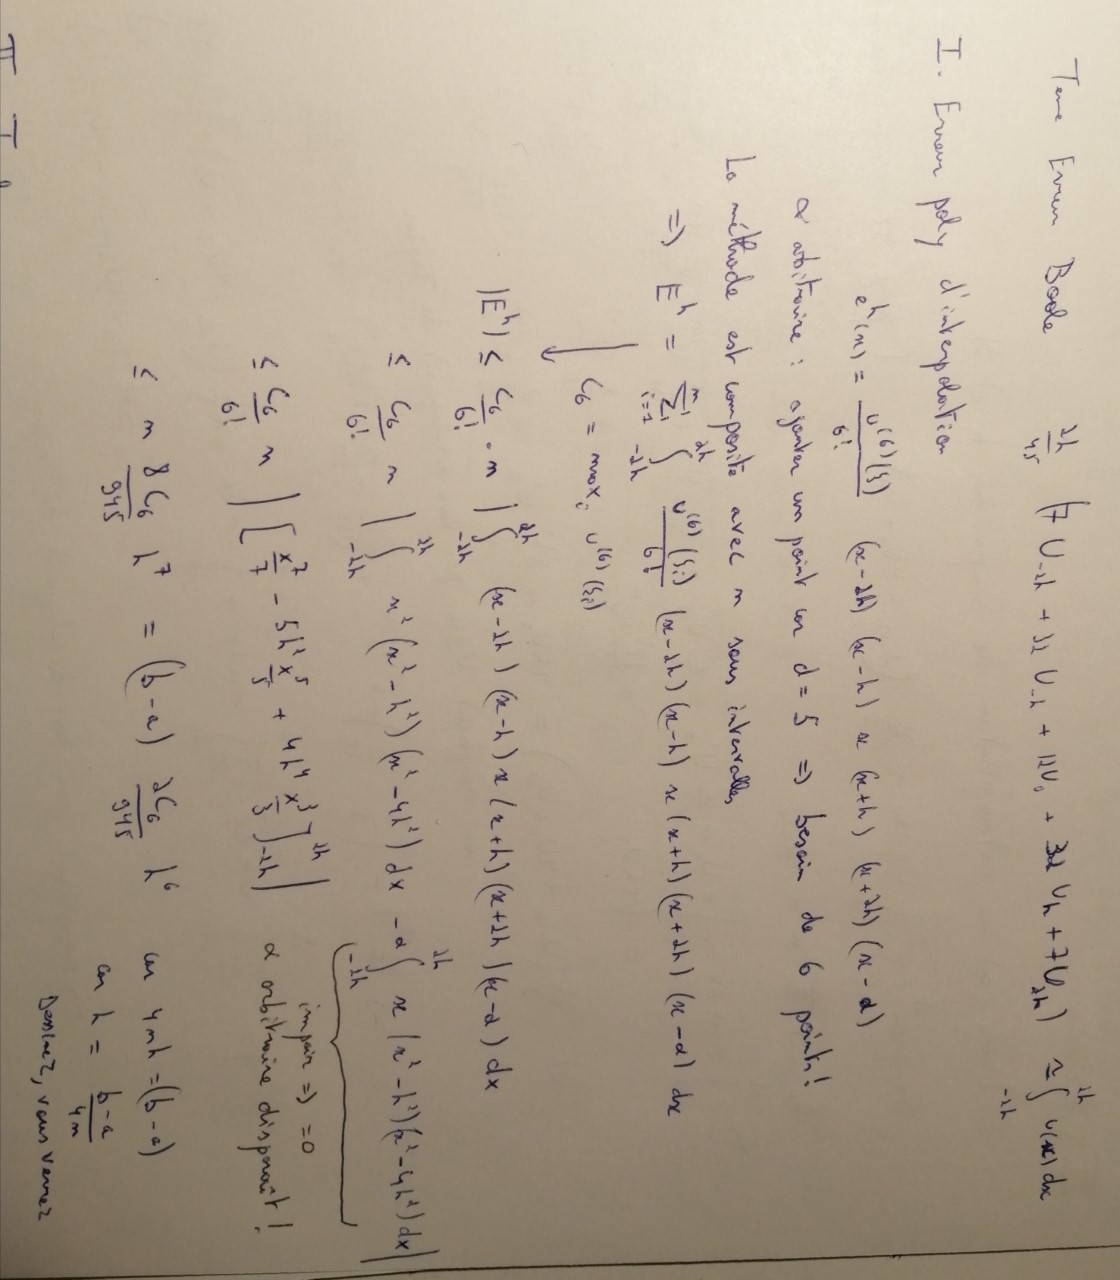 Terme Erreur Boole 2h/45 (7 U₋₂ₕ + 32 U₋ₕ + 12U₀ + 32 Uₕ + 7U₂ₕ) ≈ ∫₋₂ₕ²ʰ u(x) dx
I. Erreur poly d'interpolation
eʰ(x) = u⁽⁶⁾(ξ)/6! (x-2h) (x-h) x (x+h) (x+2h) (x-α)
α arbitraire : ajouter un point car d = 5 => besoin de 6 points !
La méthode est composite avec n sous intervalles
=> Eʰ = Σᵢ₌₁ⁿ ∫₋₂ₕ²ʰ u⁽⁶⁾(ξᵢ)/6! (x-2h) (x-h) x (x+h) (x+2h) (x-α) dx
C₆ = maxᵢ u⁽⁶⁾(ξᵢ)
|Eʰ| ≤ C₆/6! · n | ∫₋₂ₕ²ʰ (x-2h) (x-h) x (x+h) (x+2h) (x-α) dx
≤ C₆/6! n | ∫₋₂ₕ²ʰ x² (x²-h²) (x²-4h²) dx - α ∫₋₂ₕ²ʰ x (x²-h²) (x²-4h²) dx |
impair => =0
≤ C₆/6! n | [ x⁷/7 - 5h² x⁵/5 + 4h⁴ x³/3 ]₋₂ₕ²ʰ | α arbitraire disparaît !
≤ n 8C₆/945 h⁷ = (b-a) 2C₆/945 h⁶ car 4nh = (b-a)
car h = b-a/4n
Dessinez, vous verrez
II.